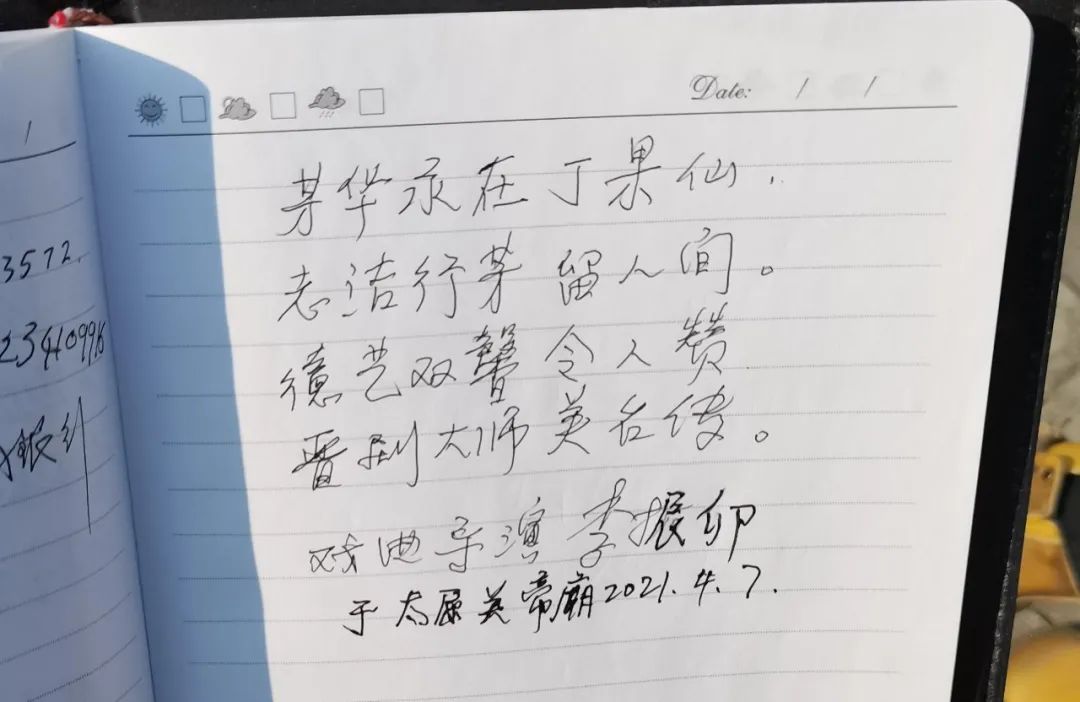 Date: / /
芳华永在丁果仙.
志洁行芳留人间。
德艺双馨令人赞
晋剧大师英名传。
戏曲导演 李振
于太原关帝庙2021.4.7.
3572.